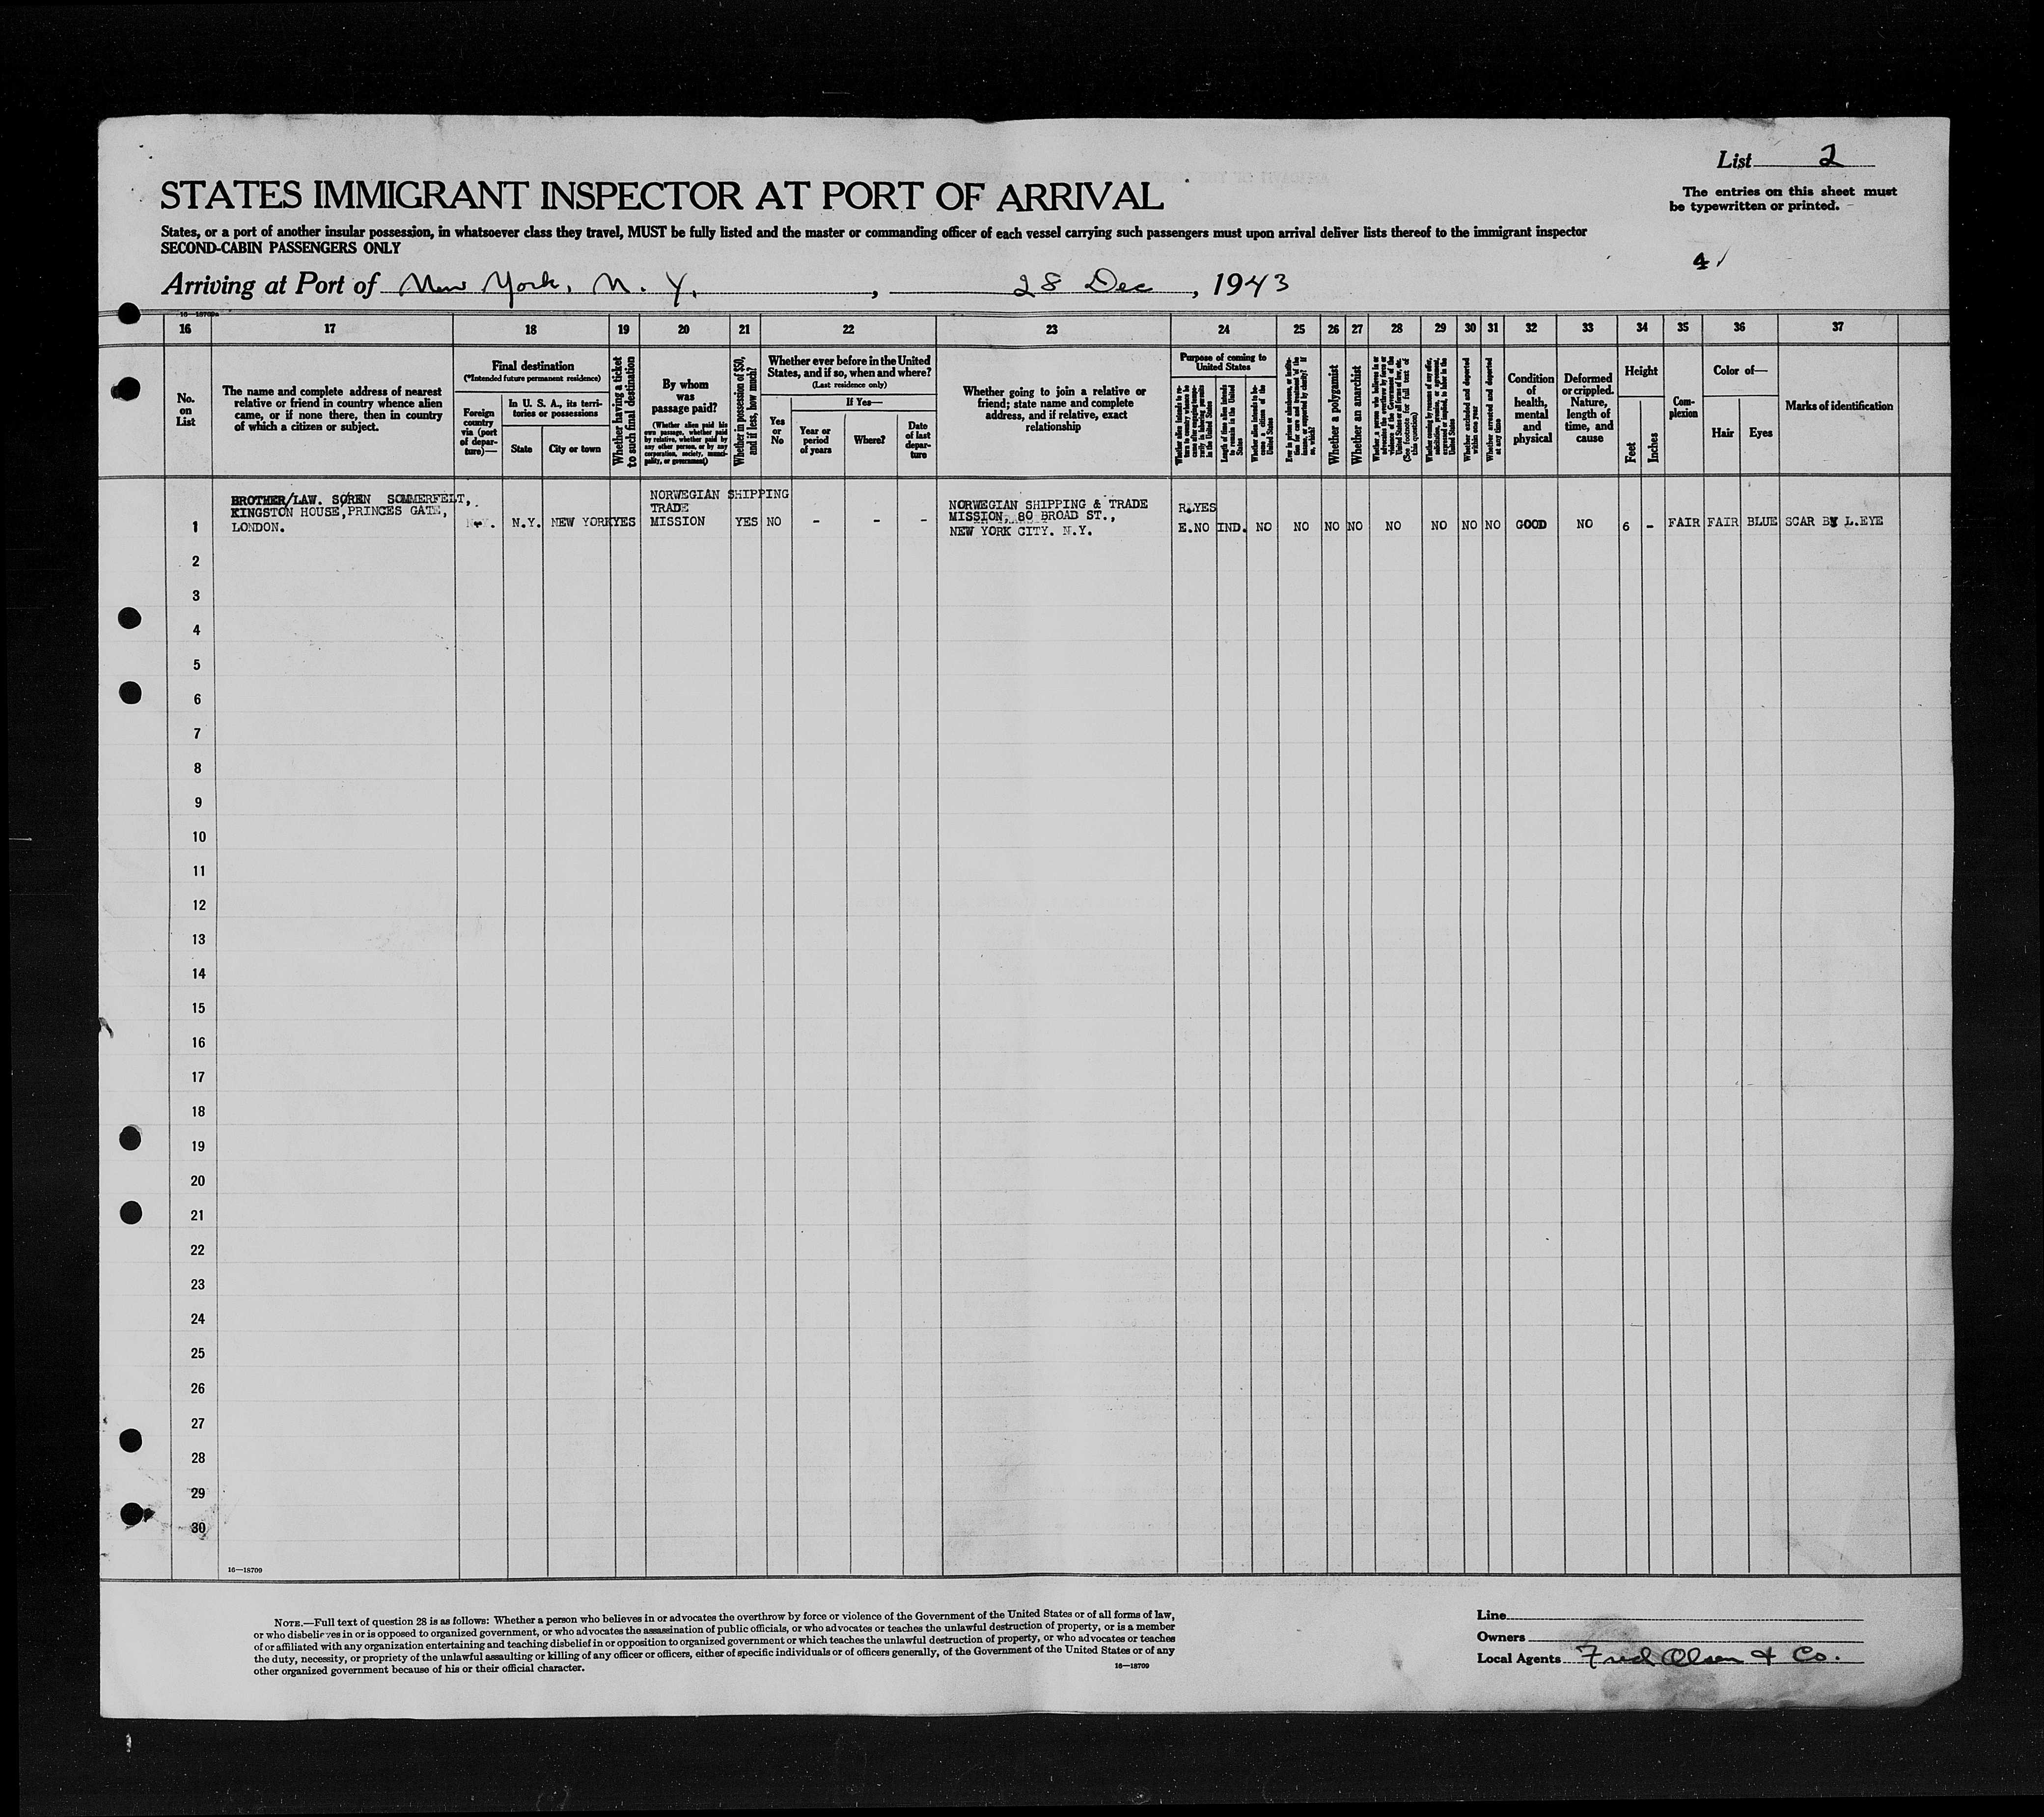 List 2
STATES IMMIGRANT INSPECTOR AT PORT OF ARRIVAL
The entries on this sheet must
be typewritten or printed.
States, or a port of another insular possession, in whatsoever class they travel, MUST be fully listed and the master or commanding officer of each vessel carrying such passengers must upon arrival deliver lists thereof to the immigrant inspector
SECOND-CABIN PASSENGERS ONLY
Arriving at Port of New York, N. Y. , 28 Dec , 1943
16—18709a
16 17 18 19 20 21 22 23 24 25 26 27 28 29 30 31 32 33 34 35 36 37
No.
on
List
The name and complete address of nearest
relative or friend in country whence alien
came, or if none there, then in country
of which a citizen or subject.
Final destination
(*Intended future permanent residence)
Foreign
country
via (port
of depar-
ture)—
In U. S. A., its terri-
tories or possessions
State
City or town
Whether having a ticket
to such final destination
By whom
was
passage paid?
(Whether alien paid his
own passage, whether paid
by relative, whether paid by
any other person, or by any
corporation, society, munici-
pality, or government)
Whether in possession of $50,
and if less, how much?
Whether ever before in the United
States, and if so, when and where?
(Last residence only)
Yes
or
No
If Yes—
Year or
period
of years
Where?
Date
of last
depar-
ture
Whether going to join a relative or
friend; state name and complete
address, and if relative, exact
relationship
Purpose of coming to
United States
Whether alien intends to re-
turn to country whence he
came after engaging tempo-
rarily in laboring pursuits
in the United States
Length of time alien intends
to remain in the United
States
Whether alien intends to be-
come a citizen of the
United States
Ever in prison or almshouse, or institu-
tion for care and treatment of the
insane, or supported by charity? If
so, which?
Whether a polygamist
Whether an anarchist
Whether a person who believes in or
advocates the overthrow by force or
violence of the Government of the
United States or all forms of law, etc.
(See footnote for full text of
this question)
Whether coming by reason of any offer,
solicitation, promise, or agreement,
expressed or implied, to labor in the
United States
Whether excluded and deported
within one year
Whether arrested and deported
at any time
Condition
of
health,
mental
and
physical
Deformed
or crippled.
Nature,
length of
time, and
cause
Height
Feet
Inches
Com-
plexion
Color of—
Hair
Eyes
Marks of identification
BROTHER/LAW. SØREN SOMMERFELT,
KINGSTON HOUSE, PRINCES GATE,
LONDON.
N.Y.
NEW YORK
YES
NORWEGIAN SHIPPING
TRADE
MISSION
YES
NO
-
-
-
NORWEGIAN SHIPPING & TRADE
MISSION, 80 BROAD ST.,
NEW YORK CITY. N.Y.
R.YES
E.NO
IND.
NO
NO
NO
NO
NO
NO
NO
NO
GOOD
NO
6
-
FAIR
FAIR
BLUE
SCAR BY L.EYE
1
2
3
4
5
6
7
8
9
10
11
12
13
14
15
16
17
18
19
20
21
22
23
24
25
26
27
28
29
30
16—18709
NOTE.—Full text of question 28 is as follows: Whether a person who believes in or advocates the overthrow by force or violence of the Government of the United States or of all forms of law,
or who disbelieves in or is opposed to organized government, or who advocates the assassination of public officials, or who advocates or teaches the unlawful destruction of property, or is a member
of or affiliated with any organization entertaining and teaching disbelief in or opposition to organized government or which teaches the unlawful destruction of property, or who advocates or teaches
the duty, necessity, or propriety of the unlawful assaulting or killing of any officer or officers, either of specific individuals or of officers generally, of the Government of the United States or of any
other organized government because of his or their official character.
16—18709
Line
Owners
Local Agents Fred Olsen & Co.